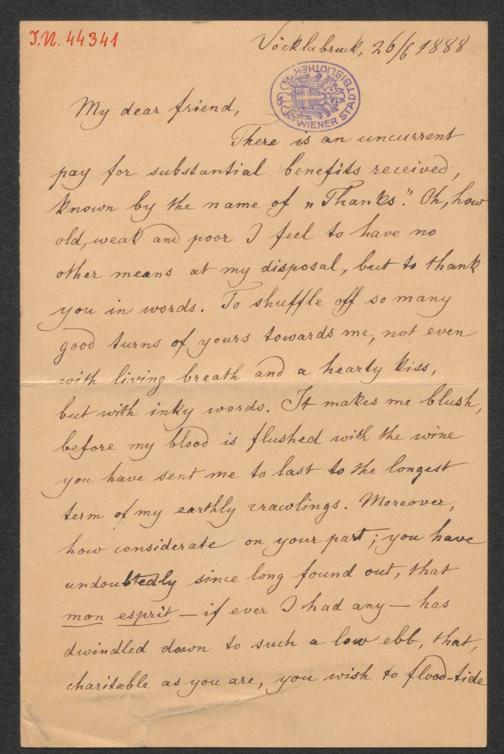 I.N. 44341
Vöcklabruck, 26/6 1888
WIENER STADTBIBLIOTHEK
My dear friend,
There is an uncurrent
pay for substantial benefits received,
known by the name of „Thanks". Oh, how
old, weak and poor I feel to have no
other means at my disposal, but to thank
you in words. To shuffle off so many
good turns of yours towards me, not even
with living breath and a hearty kiss,
but with inky words. It makes me blush,
before my blood is flushed with the wine
you have sent me to last to the longest
term of my earthly crawlings. Moreover,
how considerate on your part; you have
undoubtedly since long found out, that
mon esprit — if ever I had any — has
dwindled down to such a low ebb, that,
charitable as you are, you wish to flood-tide